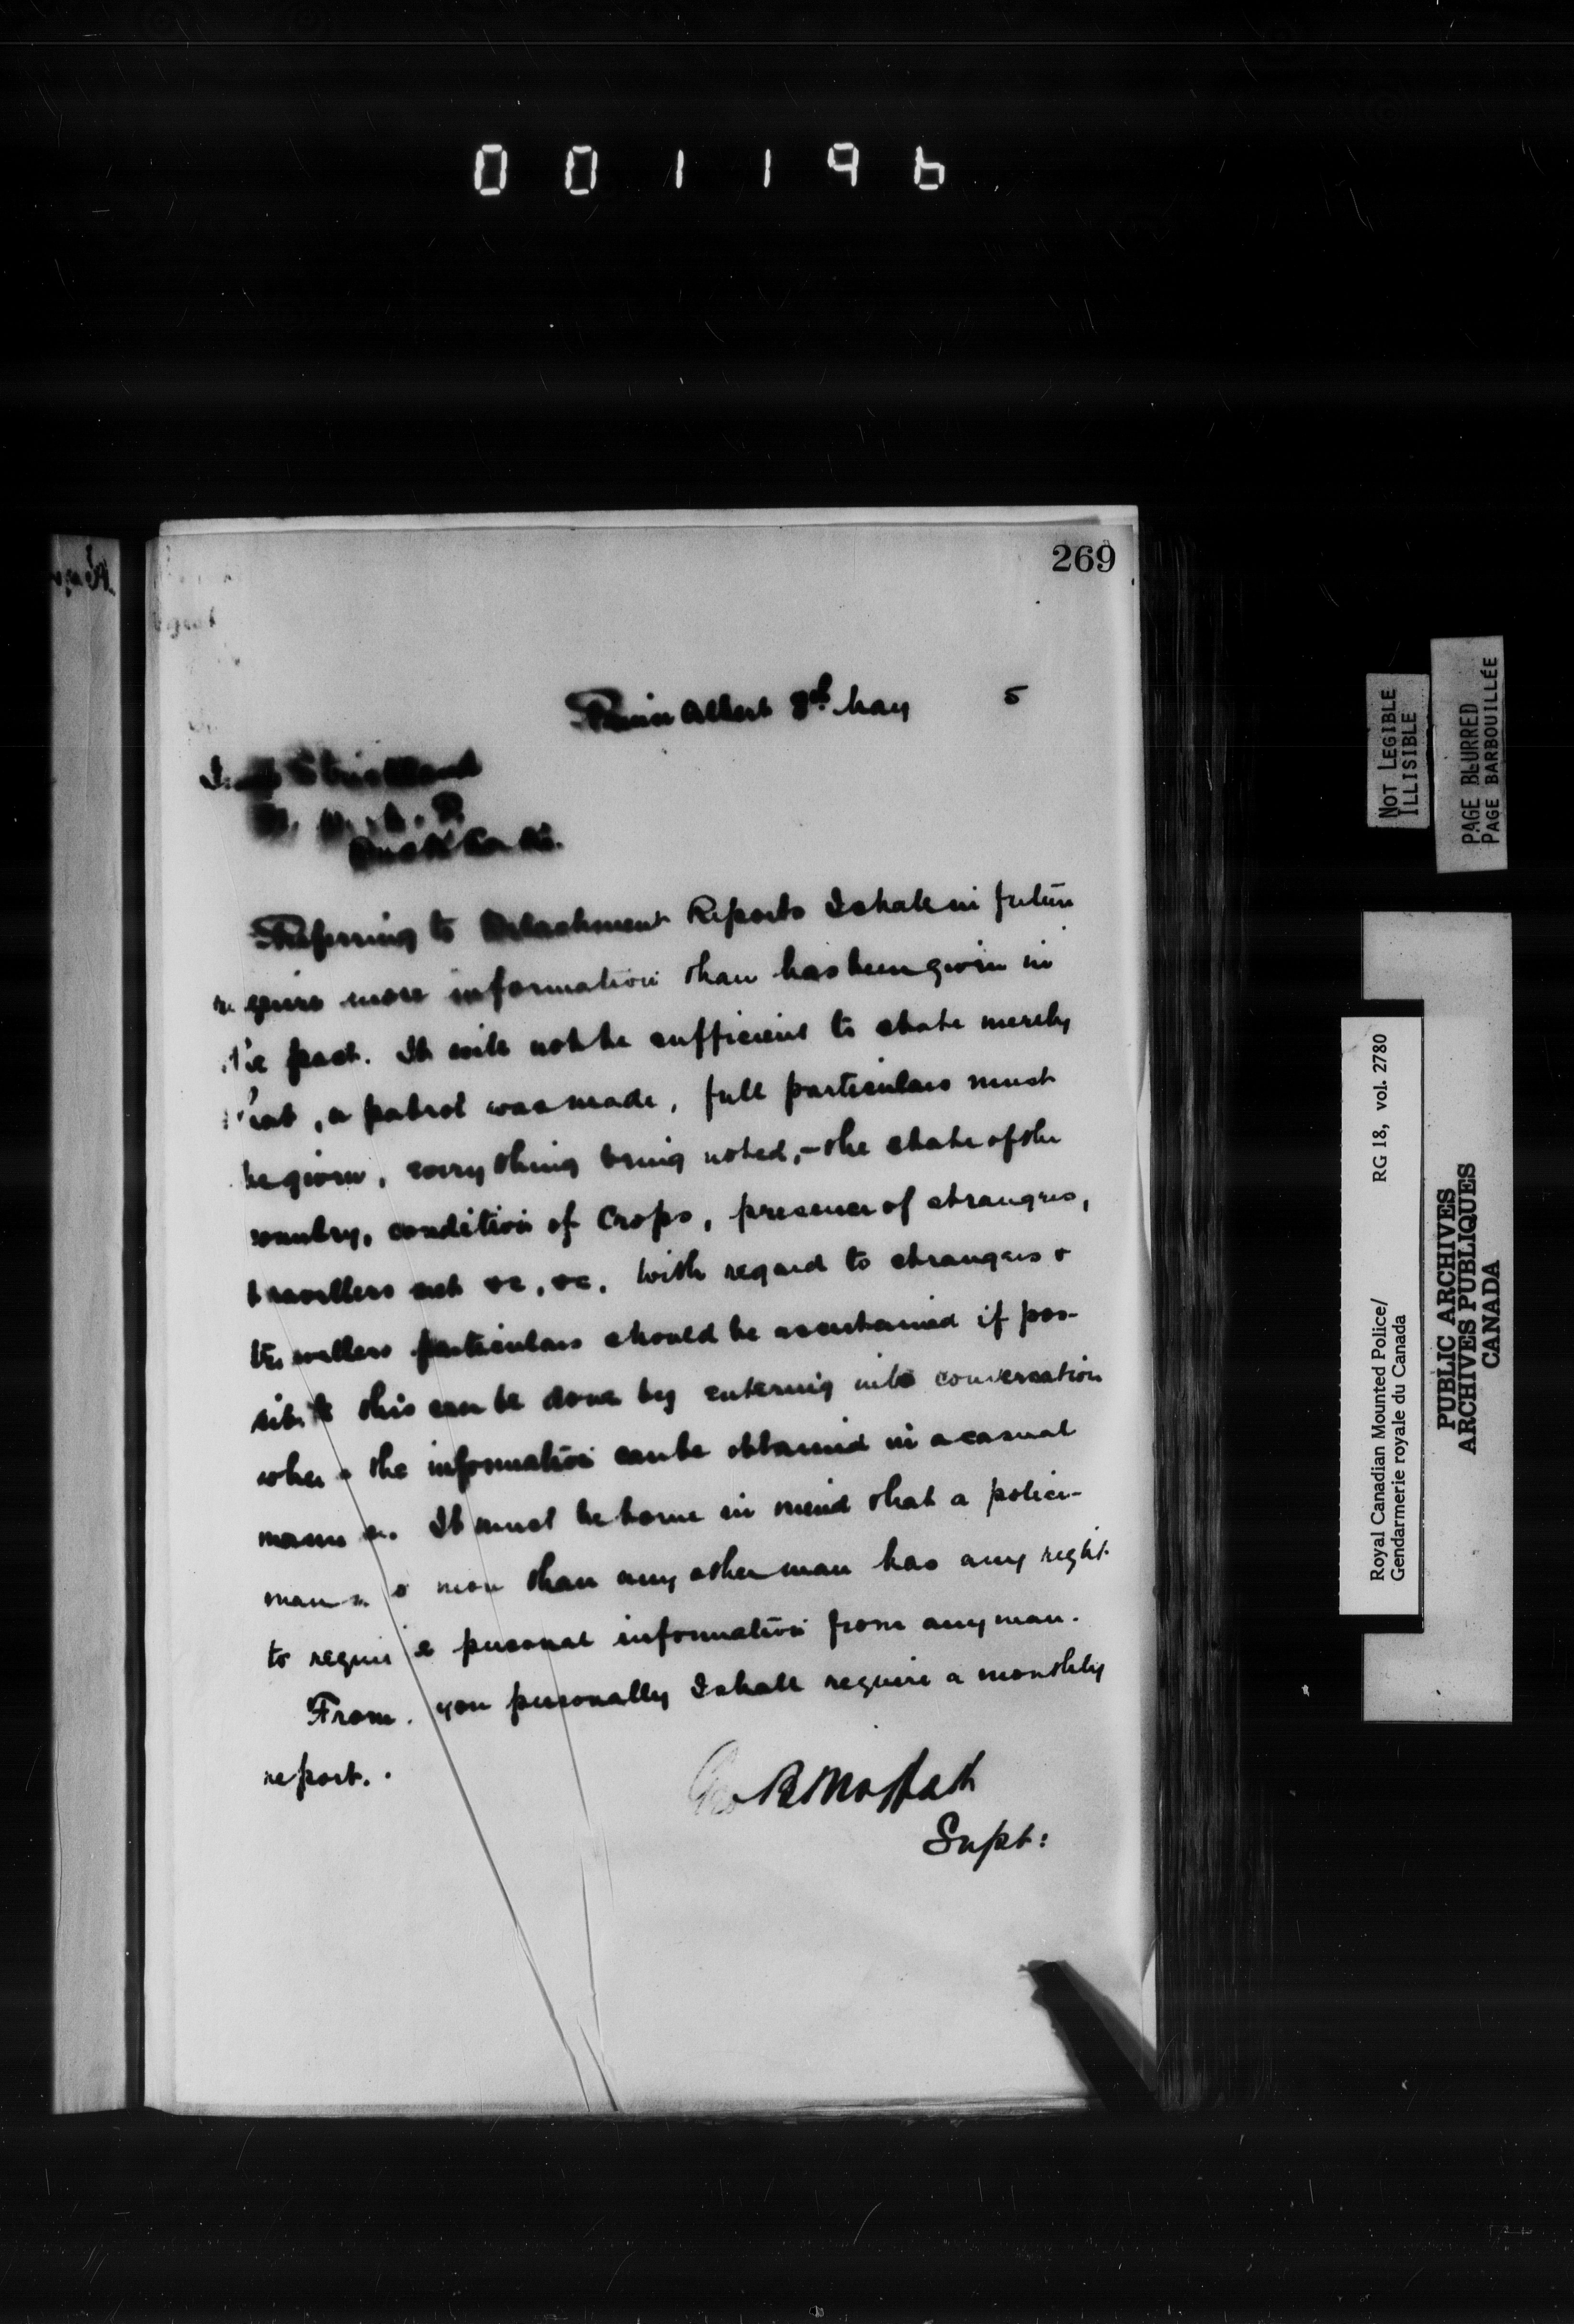 001196
269
Prince Albert 8th May 5
Insp Strickland
N. W. M. P.
Duck Lake.
Referring to Detachment Reports I shall in future
require more information than has been given in
the past. It will not be sufficient to state merely
that, a patrol was made, full particulars must
be given, everything being noted, – the state of the
country, condition of Crops, presence of strangers,
travellers &c, &c. With regard to strangers &
travellers particulars should be ascertained if pos-
sible this can be done by entering into conversation
where the information can be obtained in a casual
manner. It must be borne in mind that a police-
man no more than any other man has any right
to require personal information from any man.
From you personally I shall require a monthly
report.
Geo B Moffatt
Supt:
NOT LEGIBLE
ILLISIBLE
PAGE BLURRED
PAGE BARBOUILLÉE
Royal Canadian Mounted Police/ RG 18, vol. 2780
Gendarmerie royale du Canada
PUBLIC ARCHIVES
ARCHIVES PUBLIQUES
CANADA